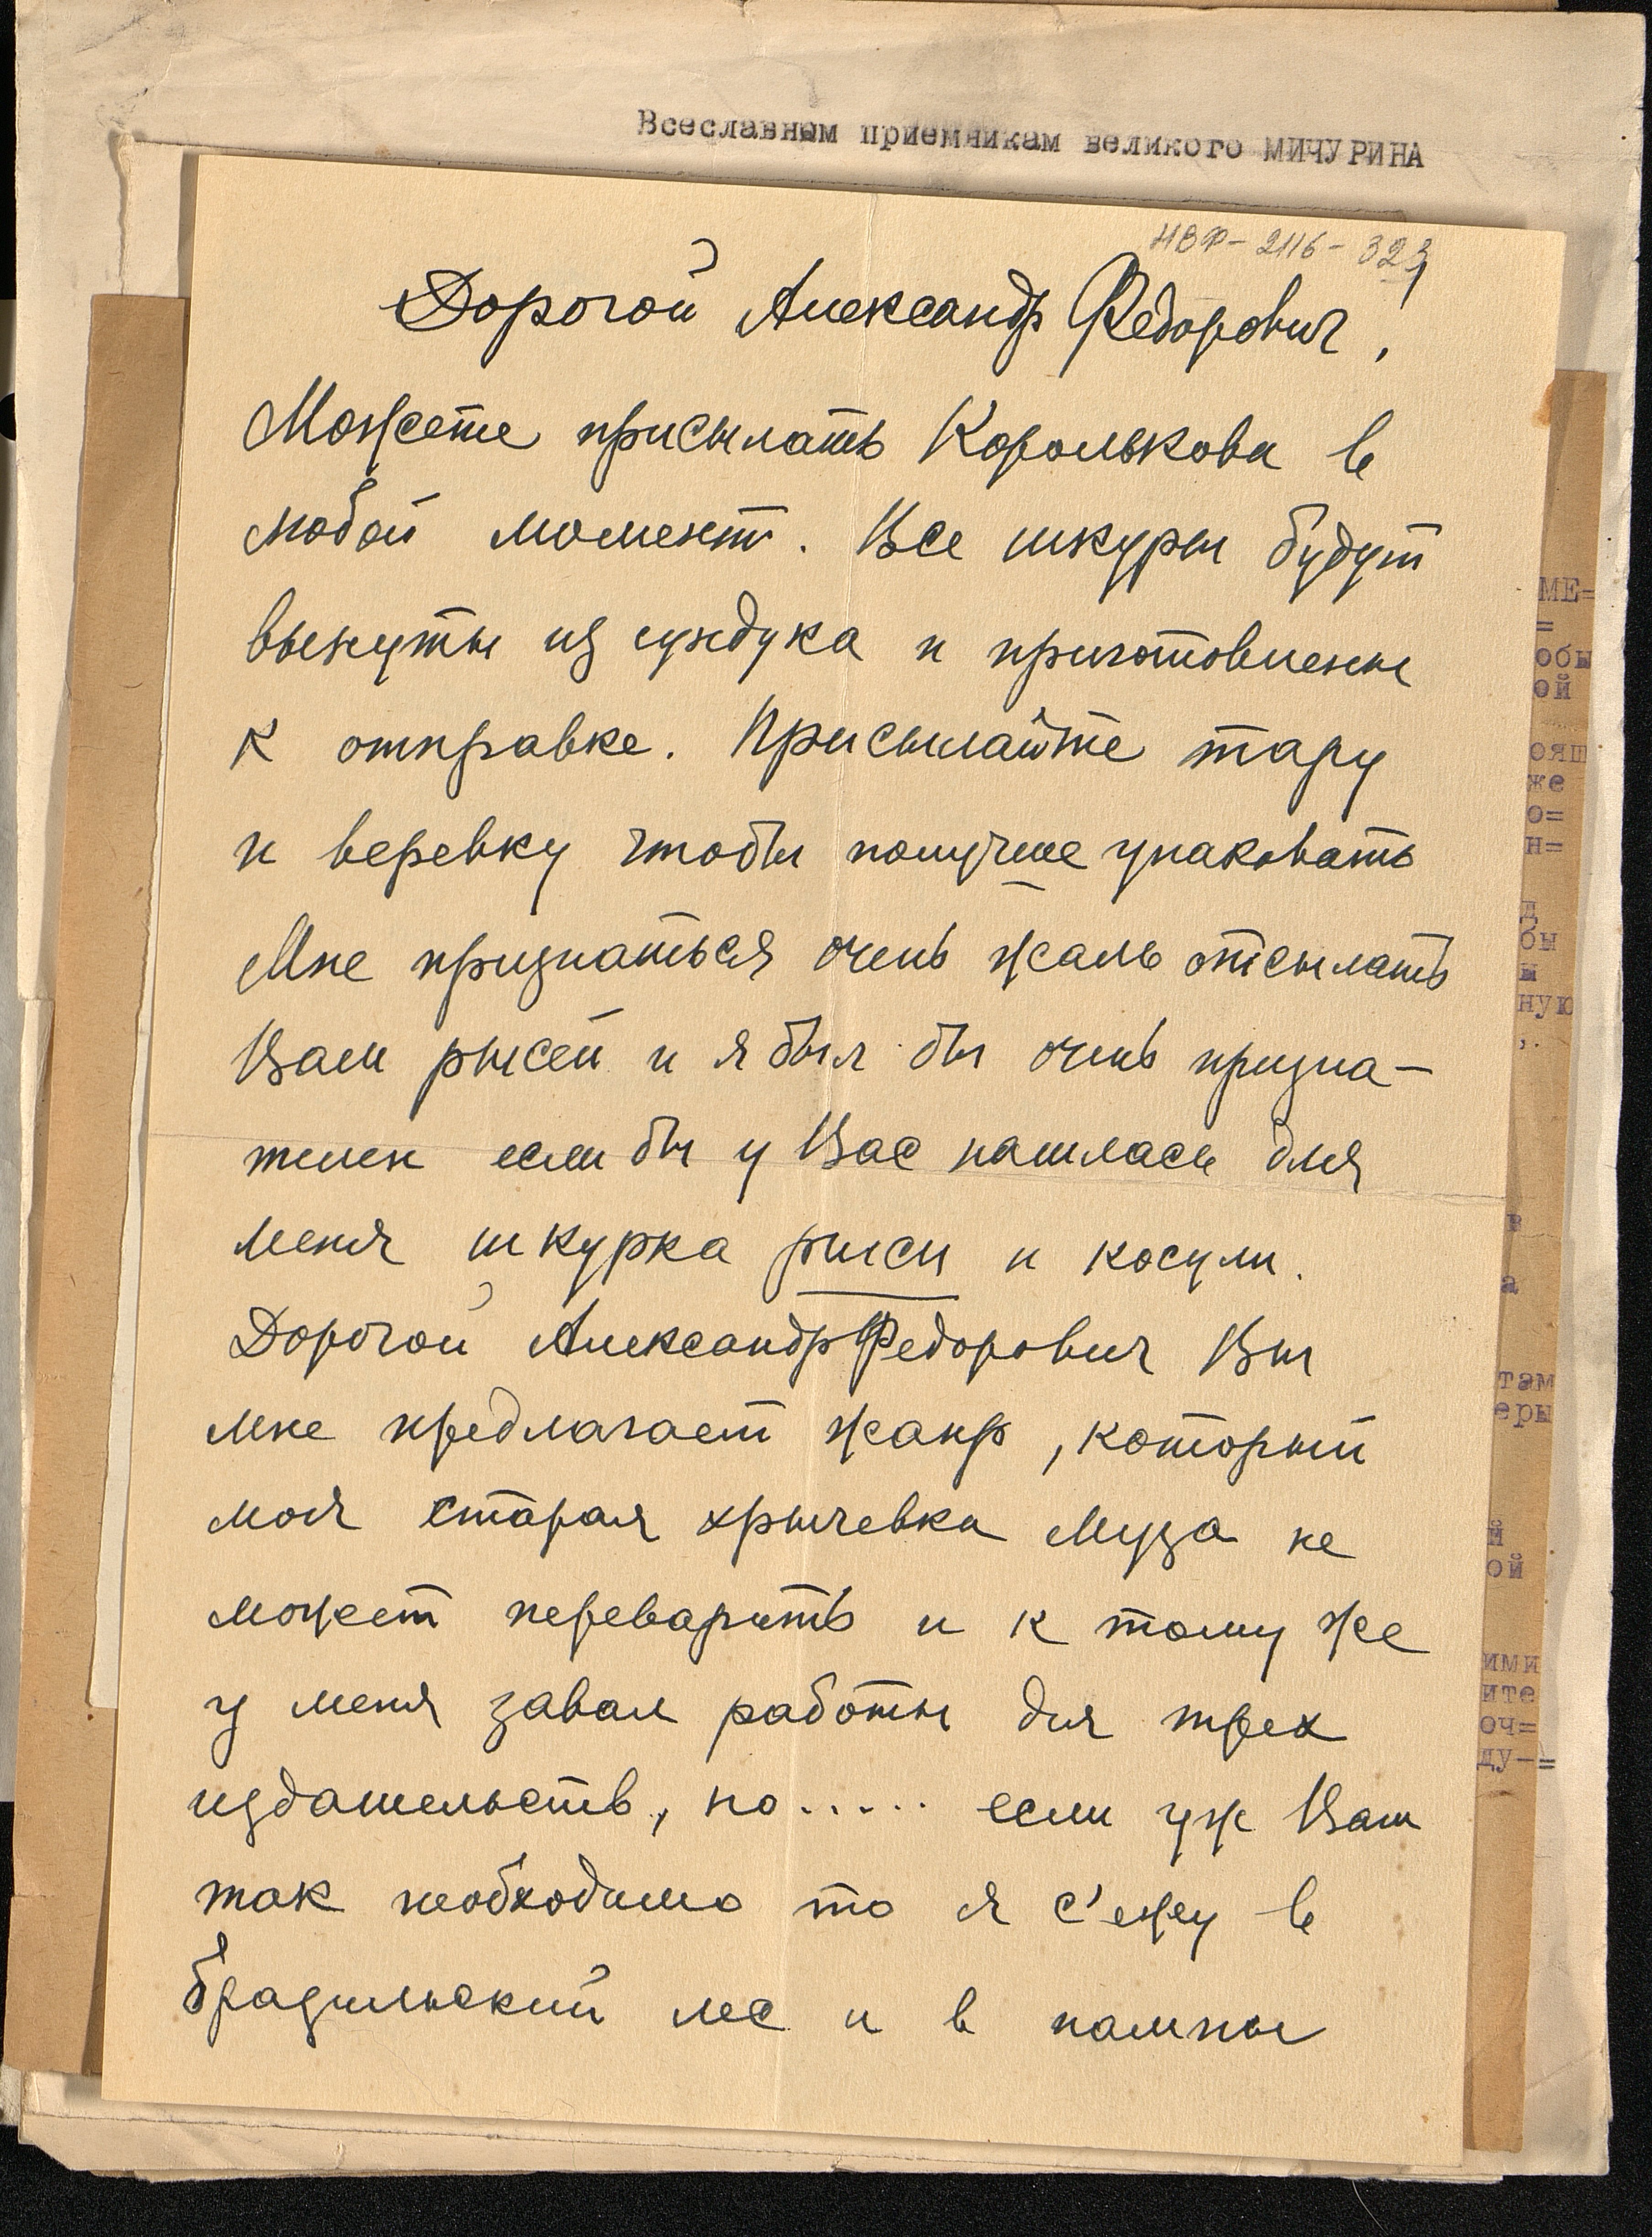 Всеславным приемникам великого МИЧУРИНА
НВФ-2116-323
Дорогой Александр Федорович!
Можете присылать Королькова в
любой момент. Все шкуры будут
вынуты из сундука и приготовлены
к отправке. Присылайте тару
и веревку чтобы получше упаковать
Мне признаться очень жаль отсылать
Вам рысей и я был бы очень призна-
телен если бы у Вас нашлась для
меня шкурка рыси и косули.
Дорогой Александр Федорович Вы
мне предлагает жанр, который
моя старая хрычевка Муза не
может переварить и к тому же
у меня завал работы для трех
издательств, но..... если уж Вам
так необходимо то я с'езжу в
бразильский лес и в пампы
МЕ=
=
обы
ой
ояш
же
о=
н=
д
бы
ы
ную
,.
в
а
там
еры
й
ой
ими
ите
оч=
ду-=